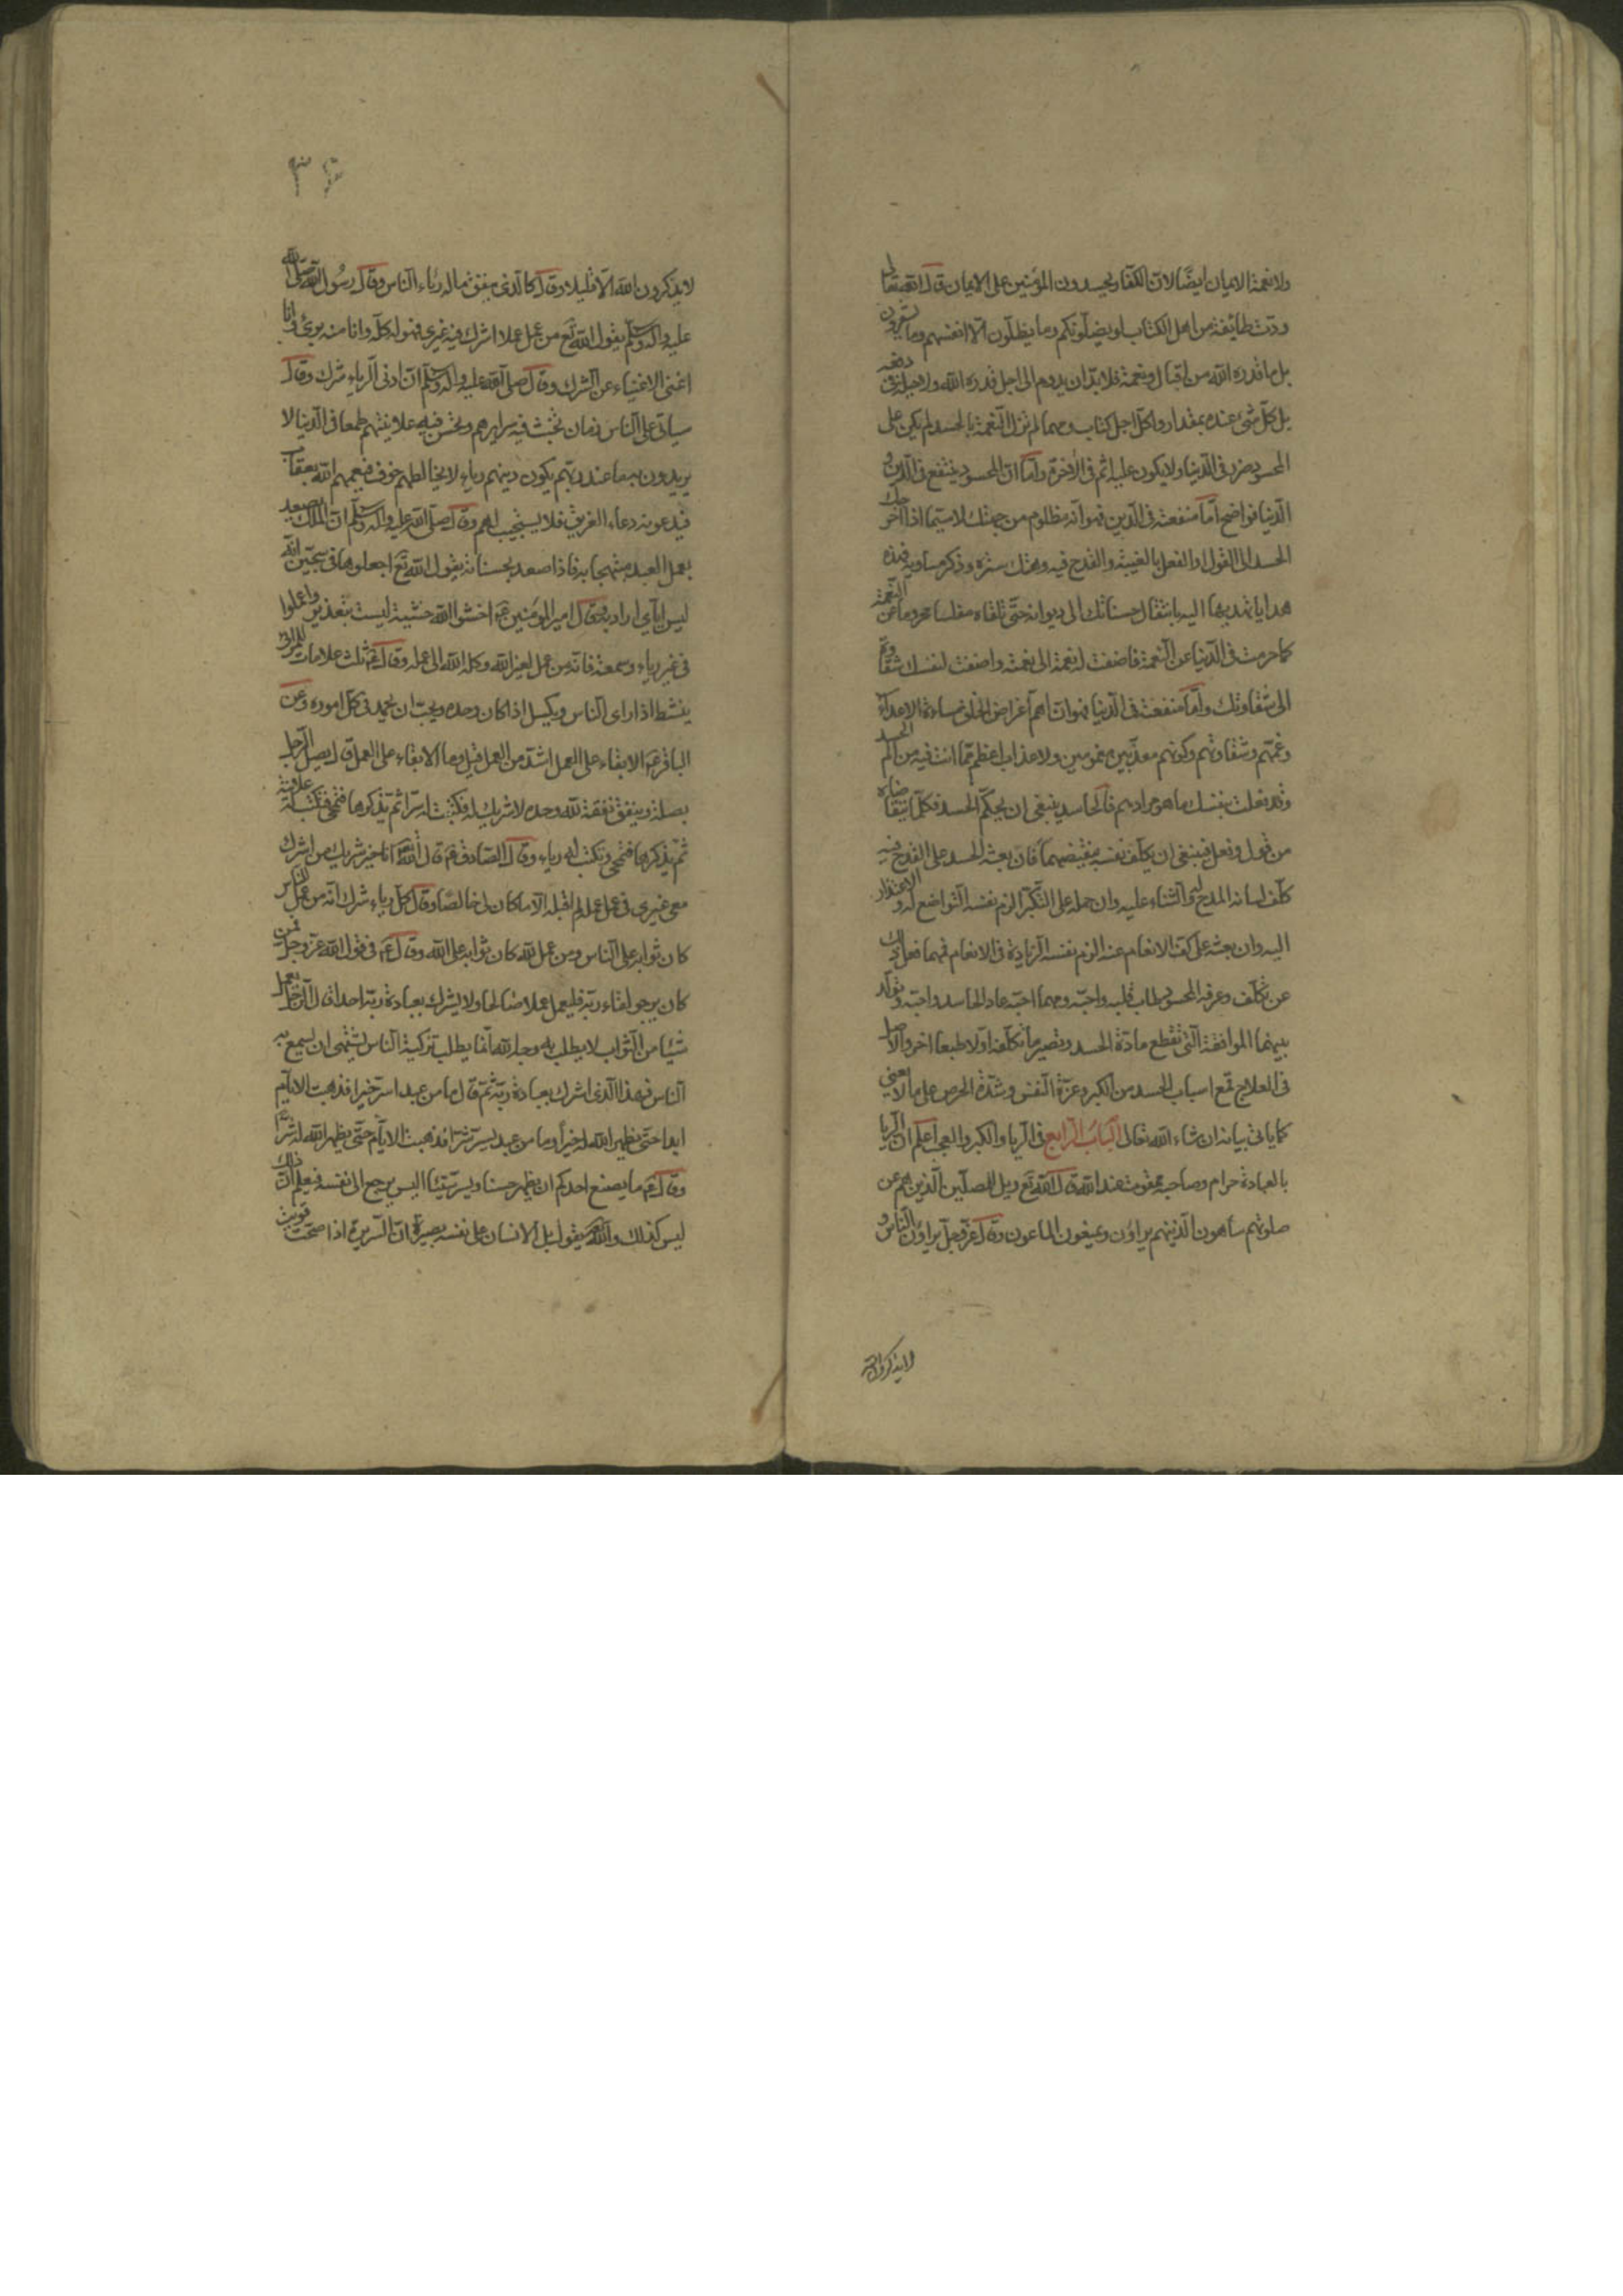 ولا نعمة الايمان ايضًا لان الكفار يحسدون المؤمنين على الايمان قال الله تعالى
ودّت طائفة من اهل الكتاب لو يضلّونكم وما يضلّون الّا انفسهم وما يشعرون
بل ما قدره الله من اقبال ونعمة فلا بدّ ان يدوم الى اجل قدره الله ولا حيلة فى دفعه
بل كلّ شئ عنده بمقدار ولكلّ اجل كتاب ومهما لم تزل النعمة بالحسد لم يكن على
المحسود ضرر فى الدّنيا ولا يكون عليه اثم فى الاخرة وامّا انّ المحسود ينتفع فى الدّين و
الدّنيا فواضح امّا منفعته فى الدّين فهو انّه مظلوم من جهتك لا سيّما اذا اخرجك
الحسد الى القول والفعل بالغيبة والقدح فيه وهتك ستره وذكر مساويه فهذه
هدايا تهديها اليه بانتقال حسناتك الى ديوانه حتّى تلقاه مفلسا محروما عن النّعمة
كما حرمت فى الدّنيا عن النّعمة فاضفت له نعمة الى نعمة واضفت لنفسك شقاوة
الى شقاوتك وامّا منفعته فى الدّنيا فهو انّ اهمّ اغراض الخلق مساءة الاعداء
وغمّهم وشقاوتهم وكونهم معذّبين مغمومين ولا عذاب اعظم ممّا انت فيه من الم الحسد
وقد فعلت بنفسك ما هو مرادهم فالحاسد ينبغى ان يحكّم الحسد فكلّما يتقاضاه
من قول وفعل فينبغى ان يكلّف نفسه نقيضهما فان بعثه الحسد على القدح فيه
كلّف لسانه المدح له والثناء عليه وان حمله على التكبّر الزم نفسه التّواضع له والاعتذار
اليه وان بعثه على كفّ الانعام عنه الزم نفسه الزّيادة فى الانعام فمهما فعل ذلك
عن تكلّف وعرفه المحسود طاب قلبه واحبّه ومهما احبّه عاد الحاسد واحبّه وتولّد
بينهما الموافقة الّتى تقطع مادّة الحسد وتصير ما تكلّفه اولا طبعا اخر والاصل
فى العلاج قمع اسباب الحسد من الكبر وعزّة النّفس وشدّة الحرص على ما لا يعنى
كما ياتى بيانه ان شاء الله تعالى الباب الرابع فى الريا والكبر والعجب اعلم ان الريا
بالعبادة حرام وصاحبه ممقوت عند الله قال الله تع ويل للمصلّين الّذين هم عن
صلوتهم ساهون الّذين هم يراؤن ويمنعون الماعون وقال عزّ وجلّ يراؤن النّاس و
لا يذكرون الله
لا يذكرون الله الّا قليلا وقال كالّذى ينفق ماله رئاء النّاس وقال رسول الله صلّى الله
عليه واله وسلّم يقول الله تع من عمل عملا اشرك فيه غيرى فهو له كلّه وانا منه برئ وانا
اغنى الاغنياء عن الشرك وقال صلى الله عليه واله وسلّم انّ ادنى الرّياء شرك وقال
سياتى على النّاس زمان تخبث فيه سرايرهم وتحسن فيه علانيتهم طمعا فى الدّنيا لا
يريدون به ما عند ربّهم يكون دينهم رياء لا يخالطهم خوف فيعمهم الله بعقاب
فيدعونه دعاء الغريق فلا يستجيب لهم وقال صلّى الله عليه واله وسلّم انّ الملك ليصعد
بعمل العبد مبتهجا به فاذا صعد بحسناته يقول الله تع اجعلوها فى سجّين انّه
ليس ايّاى اراد به وقال امير المؤمنين ع اخشوا الله خشية ليست بتعذير واعملوا
فى غير رياء وسمعة فانّه من عمل لغير الله وكله الله الى عمله وقال ع ثلث علامات للمرائى
ينشط اذا راى النّاس ويكسل اذا كان وحده ويحبّ ان يحمد فى كلّ اموره وعن
الباقر ع الابقاء على العمل اشدّ من العمل قيل وما الابقاء على العمل قال يصل الرّجل
بصلة وينفق نفقة لله وحده لا شريك له فكتبت له سرّا ثمّ يذكرها فتمحى فتكتب له علانية
ثمّ يذكرها فتمحى وتكتب له رياء وقال الصّادق ع قال الله تع انا خير شريك من اشرك
معى غيرى فى عمل عمله لم اقبله الّا ما كان لى خالصا وقال كلّ رياء شرك انّه من عمل للنّاس
كان ثوابه على النّاس ومن عمل لله كان ثوابه على الله وقال ع فى قول الله عزّ وجلّ فمن
كان يرجو لقاء ربّه فليعمل عملا صالحا ولا يشرك بعبادة ربّه احدا قال الرّجل يعمل
شيئا من الثّواب لا يطلب به وجه الله انّما يطلب تزكية النّاس يشتهى ان يسمع به
النّاس فهذا الّذى اشرك بعبادة ربّه ثمّ قال ما من عبد اسرّ خيرا فذهبت الايّام
ابدا حتّى يظهر الله له خيراً وما من عبد يسرّ شرّا فذهبت الايّام حتّى يظهر الله له شرّا
وقال ع ما يصنع احدكم ان يظهر حسنا ويسرّ سيّئا اليس يرجع الى نفسه فيعلم انّ ذلك
ليس كذلك والله تع يقول بل الانسان على نفسه بصيرة انّ السّريرة اذا صحّت قويت